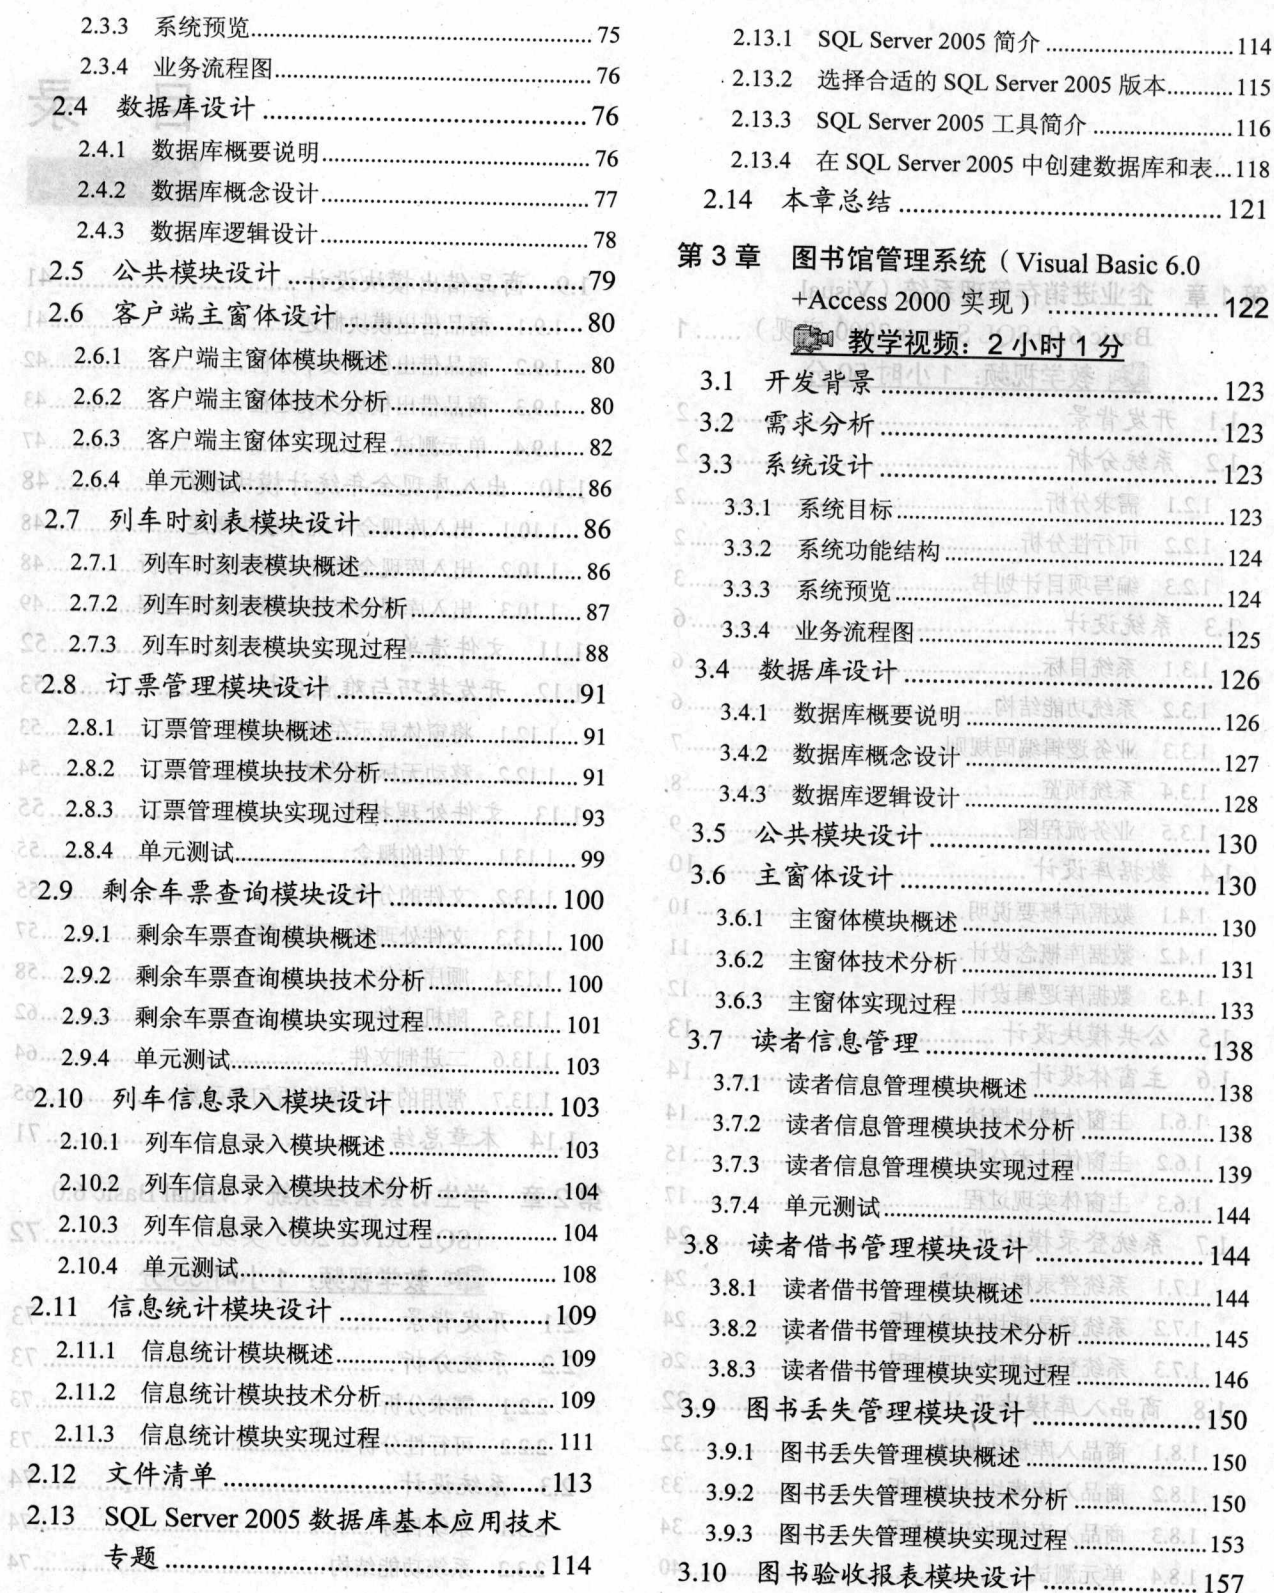 2.3.3 系统预览......75
2.3.4 业务流程图......76
2.4 数据库设计......76
2.4.1 数据库概要说明......76
2.4.2 数据库概念设计......77
2.4.3 数据库逻辑设计......78
2.5 公共模块设计......79
2.6 客户端主窗体设计......80
2.6.1 客户端主窗体模块概述......80
2.6.2 客户端主窗体技术分析......80
2.6.3 客户端主窗体实现过程......82
2.6.4 单元测试......86
2.7 列车时刻表模块设计......86
2.7.1 列车时刻表模块概述......86
2.7.2 列车时刻表模块技术分析......87
2.7.3 列车时刻表模块实现过程......88
2.8 订票管理模块设计......91
2.8.1 订票管理模块概述......91
2.8.2 订票管理模块技术分析......91
2.8.3 订票管理模块实现过程......93
2.8.4 单元测试......99
2.9 剩余车票查询模块设计......100
2.9.1 剩余车票查询模块概述......100
2.9.2 剩余车票查询模块技术分析......100
2.9.3 剩余车票查询模块实现过程......101
2.9.4 单元测试......103
2.10 列车信息录入模块设计......103
2.10.1 列车信息录入模块概述......103
2.10.2 列车信息录入模块技术分析......104
2.10.3 列车信息录入模块实现过程......104
2.10.4 单元测试......108
2.11 信息统计模块设计......109
2.11.1 信息统计模块概述......109
2.11.2 信息统计模块技术分析......109
2.11.3 信息统计模块实现过程......111
2.12 文件清单......113
2.13 SQL Server 2005 数据库基本应用技术
专题......114
2.13.1 SQL Server 2005 简介......114
2.13.2 选择合适的 SQL Server 2005 版本......115
2.13.3 SQL Server 2005 工具简介......116
2.13.4 在 SQL Server 2005 中创建数据库和表...118
2.14 本章总结......121
第 3 章 图书馆管理系统（Visual Basic 6.0
+Access 2000 实现）......122
教学视频：2 小时 1 分
3.1 开发背景......123
3.2 需求分析......123
3.3 系统设计......123
3.3.1 系统目标......123
3.3.2 系统功能结构......124
3.3.3 系统预览......124
3.3.4 业务流程图......125
3.4 数据库设计......126
3.4.1 数据库概要说明......126
3.4.2 数据库概念设计......127
3.4.3 数据库逻辑设计......128
3.5 公共模块设计......130
3.6 主窗体设计......130
3.6.1 主窗体模块概述......130
3.6.2 主窗体技术分析......131
3.6.3 主窗体实现过程......133
3.7 读者信息管理......138
3.7.1 读者信息管理模块概述......138
3.7.2 读者信息管理模块技术分析......138
3.7.3 读者信息管理模块实现过程......139
3.7.4 单元测试......144
3.8 读者借书管理模块设计......144
3.8.1 读者借书管理模块概述......144
3.8.2 读者借书管理模块技术分析......145
3.8.3 读者借书管理模块实现过程......146
3.9 图书丢失管理模块设计......150
3.9.1 图书丢失管理模块概述......150
3.9.2 图书丢失管理模块技术分析......150
3.9.3 图书丢失管理模块实现过程......153
3.10 图书验收报表模块设计......157